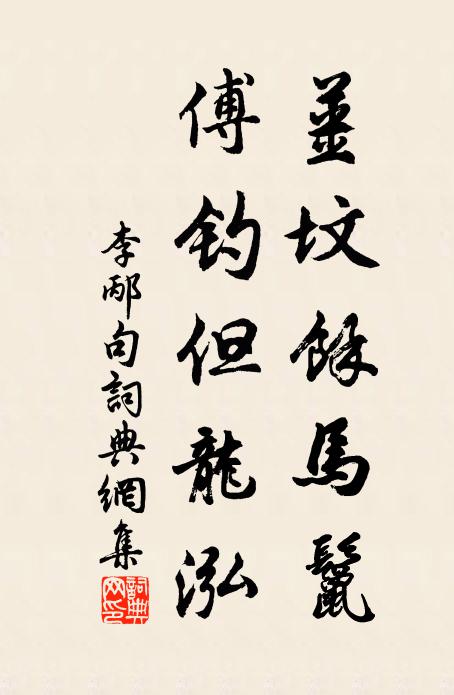 薑坟餘馬鬣
傅釣但龍泓
李邴句詞典網集
詞典
网印